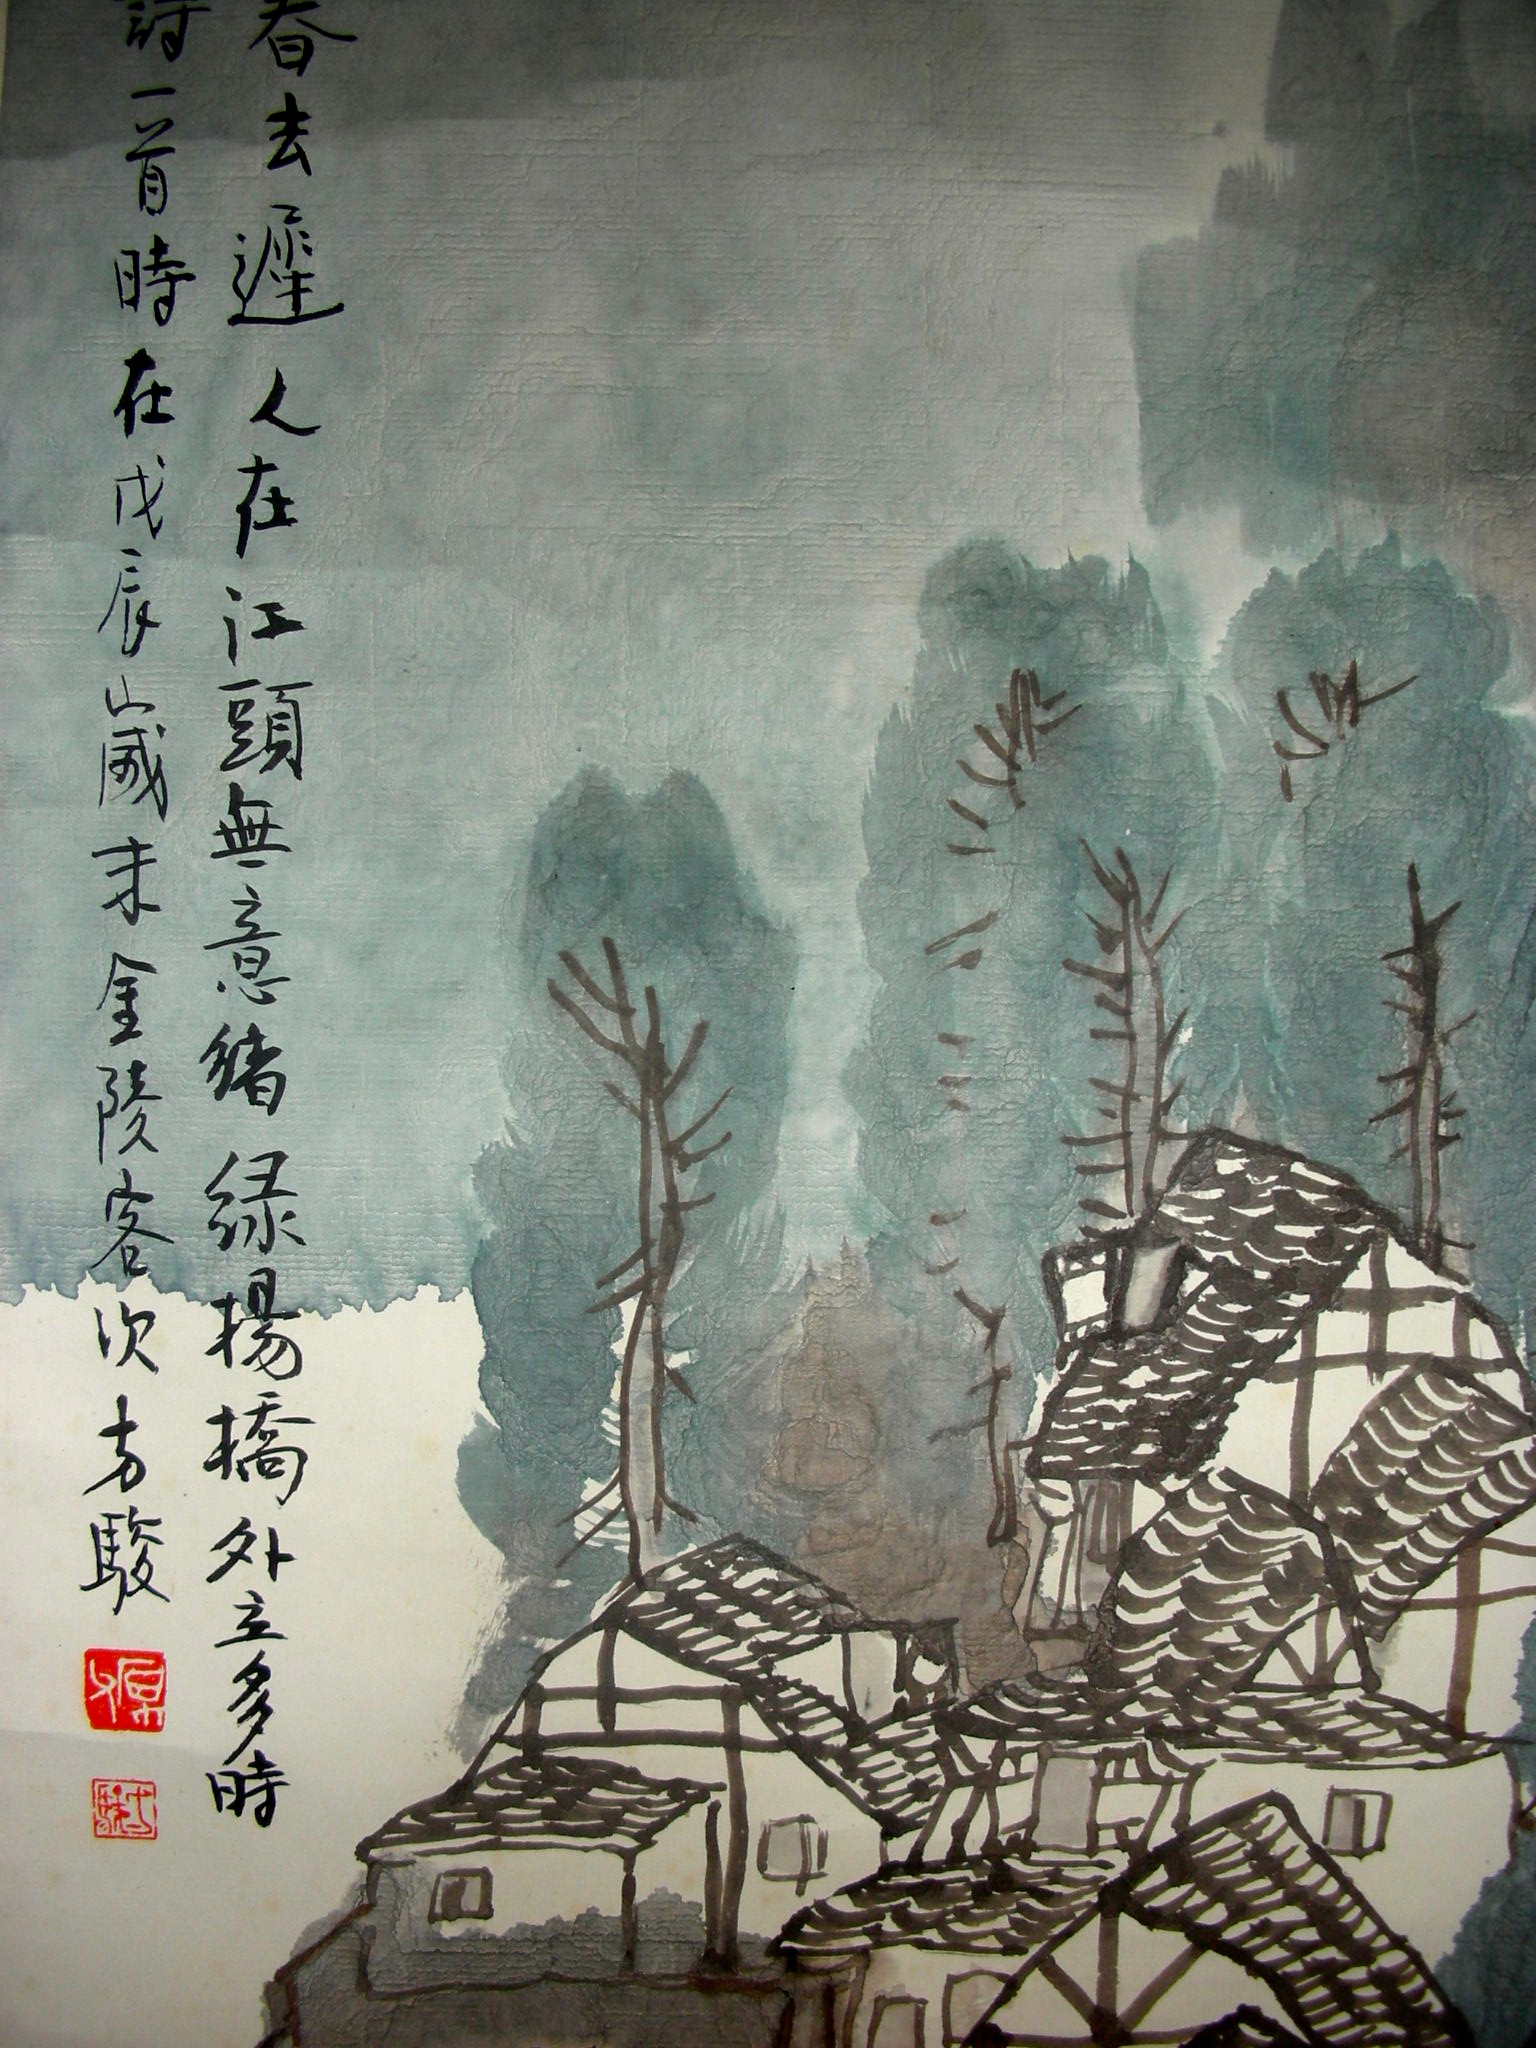 春去遲人在江頭無意緒綠楊橋外立多時
詩一首時在戊辰歲末金陵客次方駿